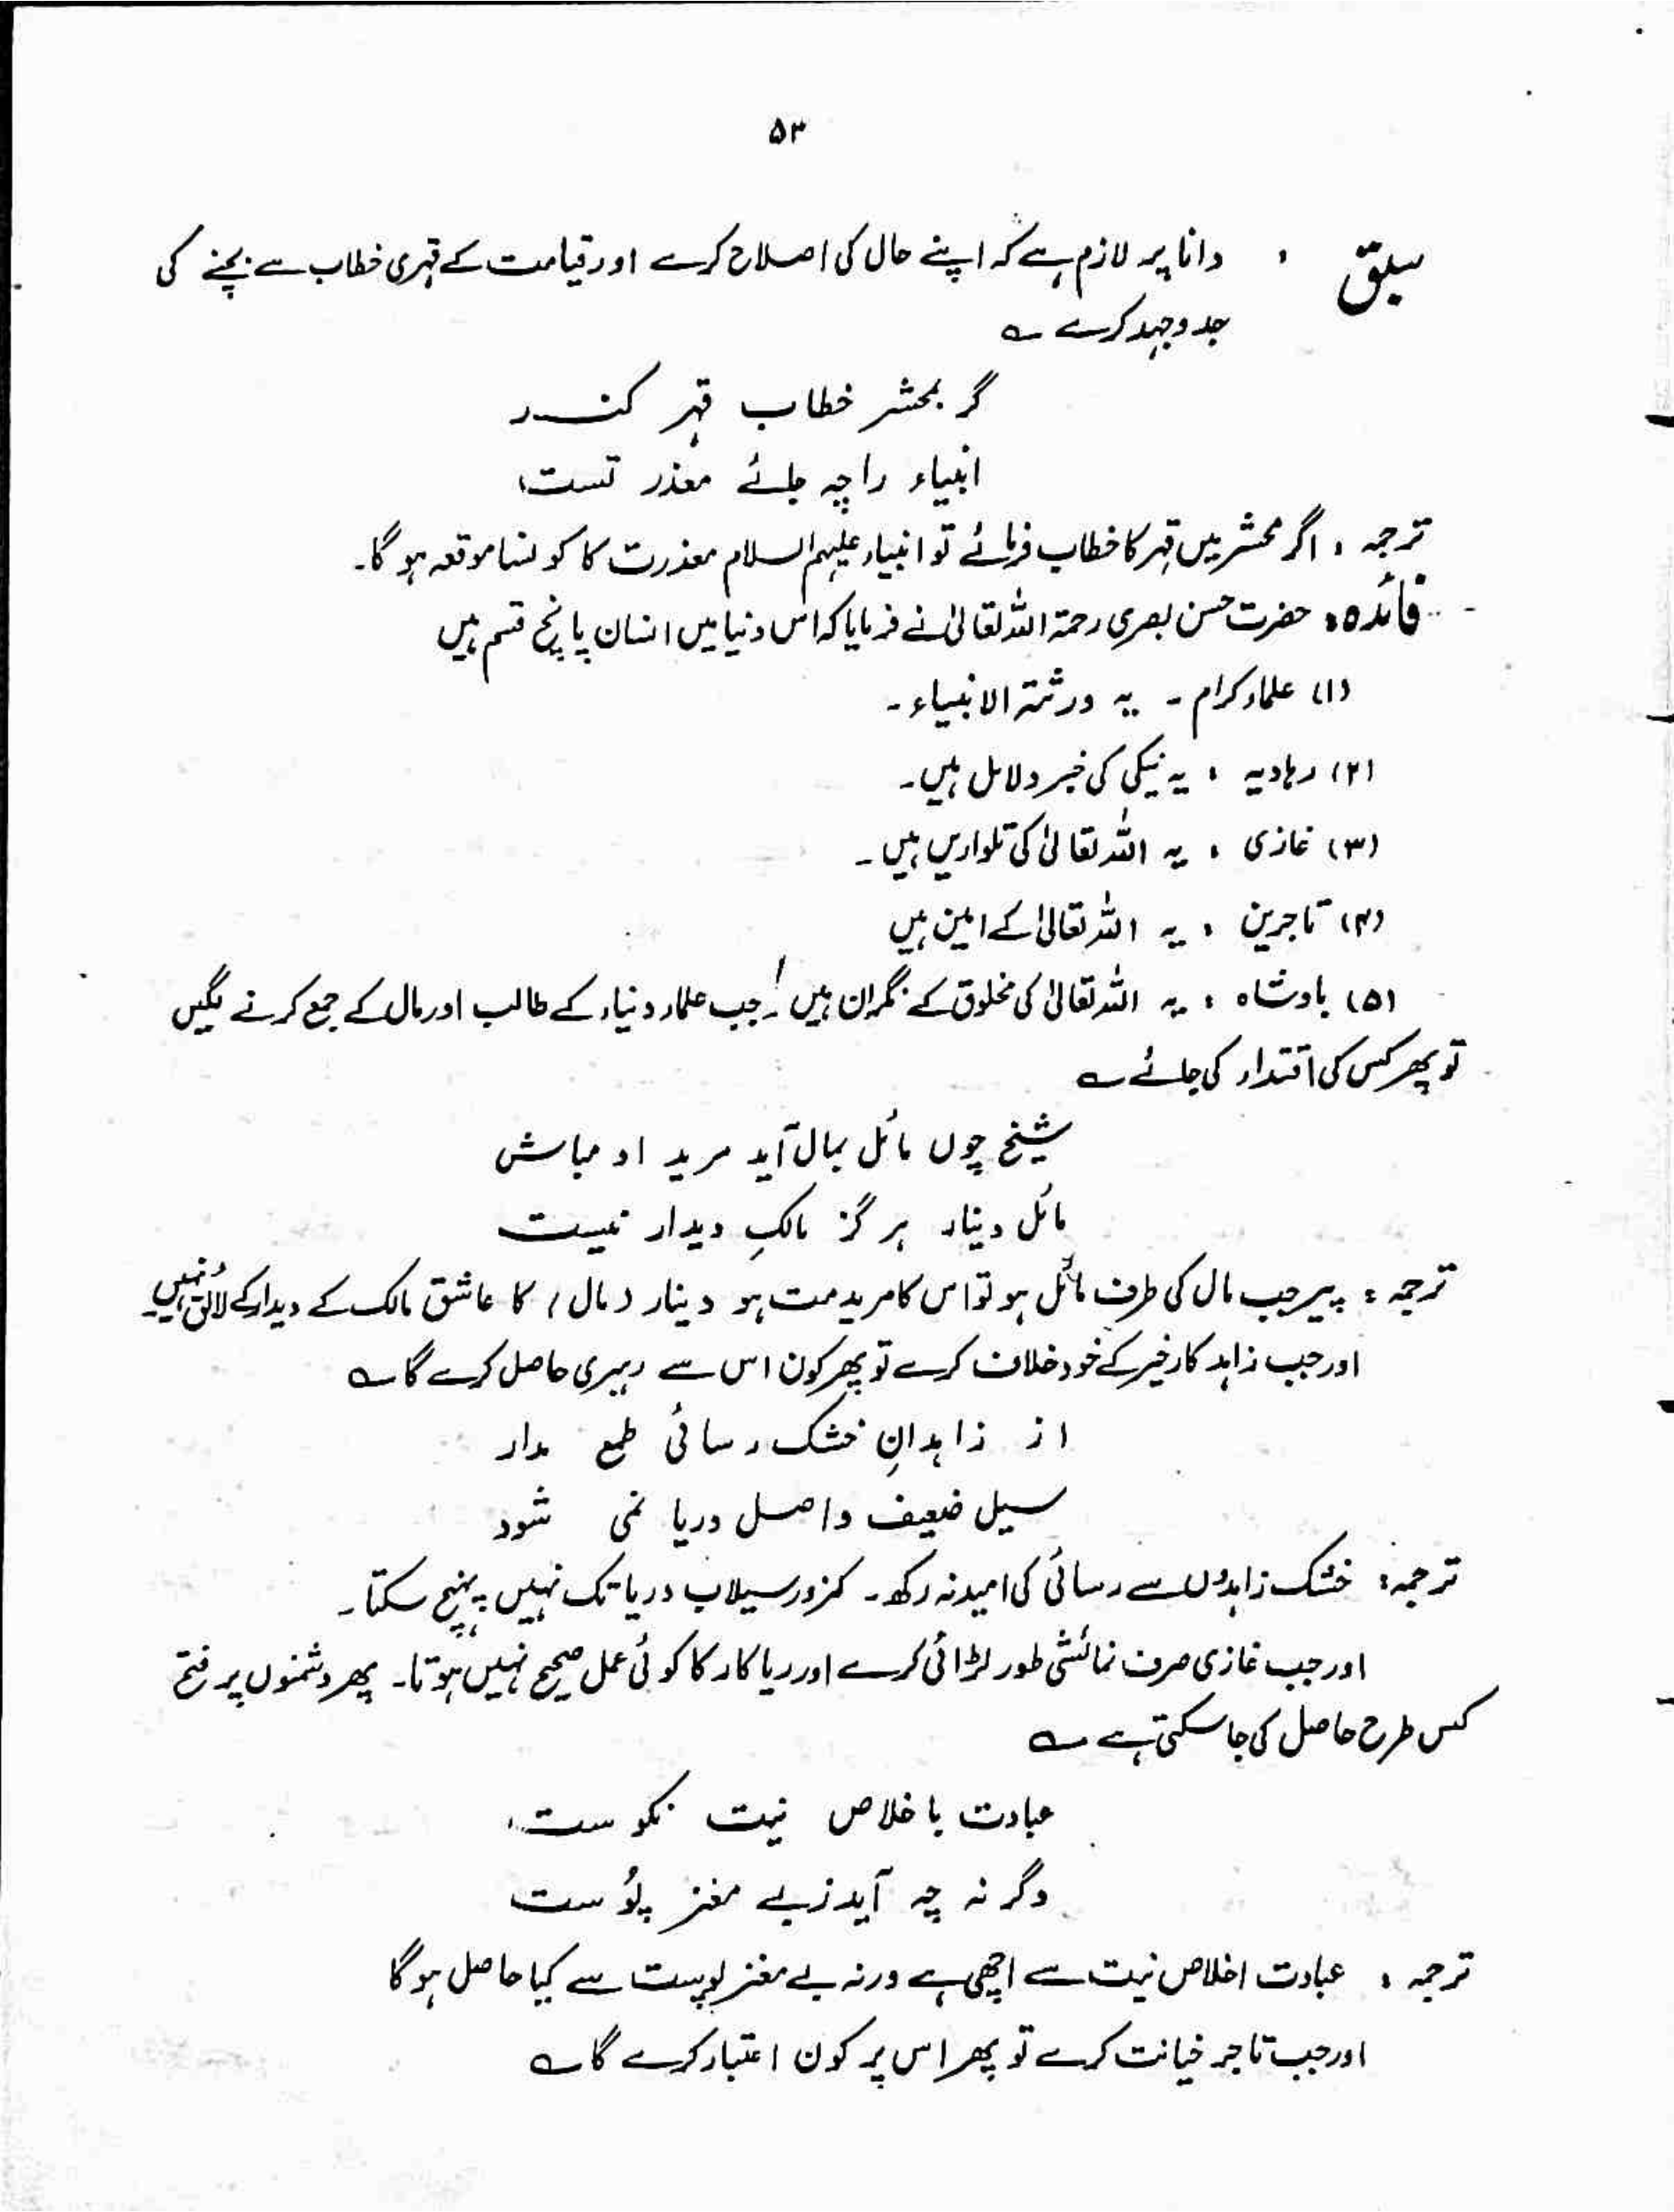 ۵۳
سبق : دانا پر لازم ہے کہ اپنے حال کی اصلاح کرے اور قیامت کے قہری خطاب سے بچنے کی
جد و جہد کرے ؎
گر بمحشر خطاب قہر کند
انبیاء را چہ جائے معذر تست
ترجمہ : اگر محشر میں قہر کا خطاب فرمائے تو انبیاء علیہم السلام معذرت کا کونسا موقعہ ہو گا۔
فائدہ : حضرت حسن بصری رحمۃ اللہ تعالیٰ نے فرمایا کہ اس دنیا میں انسان پانچ قسم ہیں
(۱) علماء کرام ۔ یہ ورثۃ الانبیاء ۔
(۲) رہادیہ : یہ نیکی کی خبر ودلائل ہیں۔
(۳) غازی : یہ اللہ تعالیٰ کی تلواریں ہیں ۔
(۴) تاجرین : یہ اللہ تعالیٰ کے امین ہیں
(۵) بادشاہ : یہ اللہ تعالیٰ کی مخلوق کے نگران ہیں ۔ جب علماء دنیاء کے طالب اور مال کے جمع کرنے لگیں
تو پھر کس کی اقتداء کی جائے ؎
شیخ چوں مائل بمال آید مرید او مباش
مائل دینار ہر گز مالکِ دیدار نیست
ترجمہ : پیر جب مال کی طرف مائل ہو تو اس کا مرید مت ہو دینار (مال) کا عاشق مالک کے دیدار کے لائق نہیں۔
اور جب زاہد کار خیر کے خود خلاف کرے تو پھر کون اس سے رہبری حاصل کرے گا ؎
از زاہدانِ خشک رسائی طمع مدار
سیل ضعیف واصل دریا نمی شود
ترجمہ : خشک زاہدوں سے رسائی کی امید نہ رکھ ۔ کمزور سیلاب دریا تک نہیں پہنچ سکتا ۔
اور جب غازی صرف نمائشی طور لڑائی کرے اور ریا کار کا کوئی عمل صحیح نہیں ہوتا ۔ پھر دشمنوں پر فتح
کس طرح حاصل کی جا سکتی ہے ؎
عبادت باخلاص نیت نکو ست
وگر نہ چہ آید ز بے مغز پوست
ترجمہ : عبادت اخلاص نیت سے اچھی ہے ورنہ بے مغز پوست سے کیا حاصل ہو گا
اور جب تاجر خیانت کرے تو پھر اس پر کون اعتبار کرے گا ؎